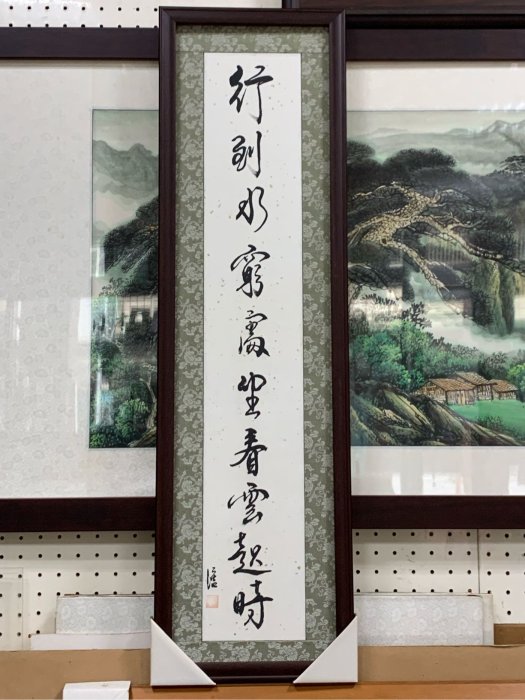 行到水窮處坐看雲起時